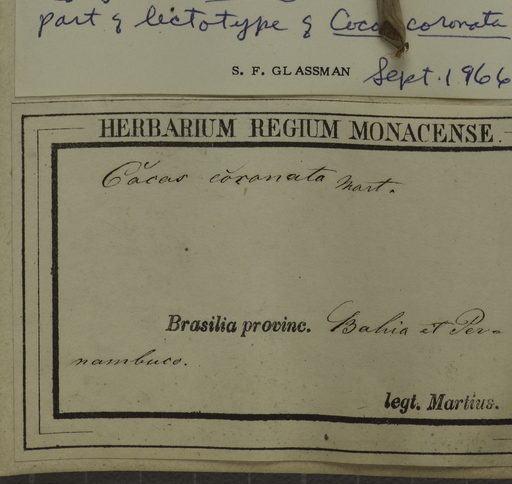 part of lectotype of Cocos coronata
S. F. GLASSMAN Sept. 1966
HERBARIUM REGIUM MONACENSE.
Cocos coronata Mart.
Brasilia provinc. Bahia et Per-
nambuco.
legt. Martius.